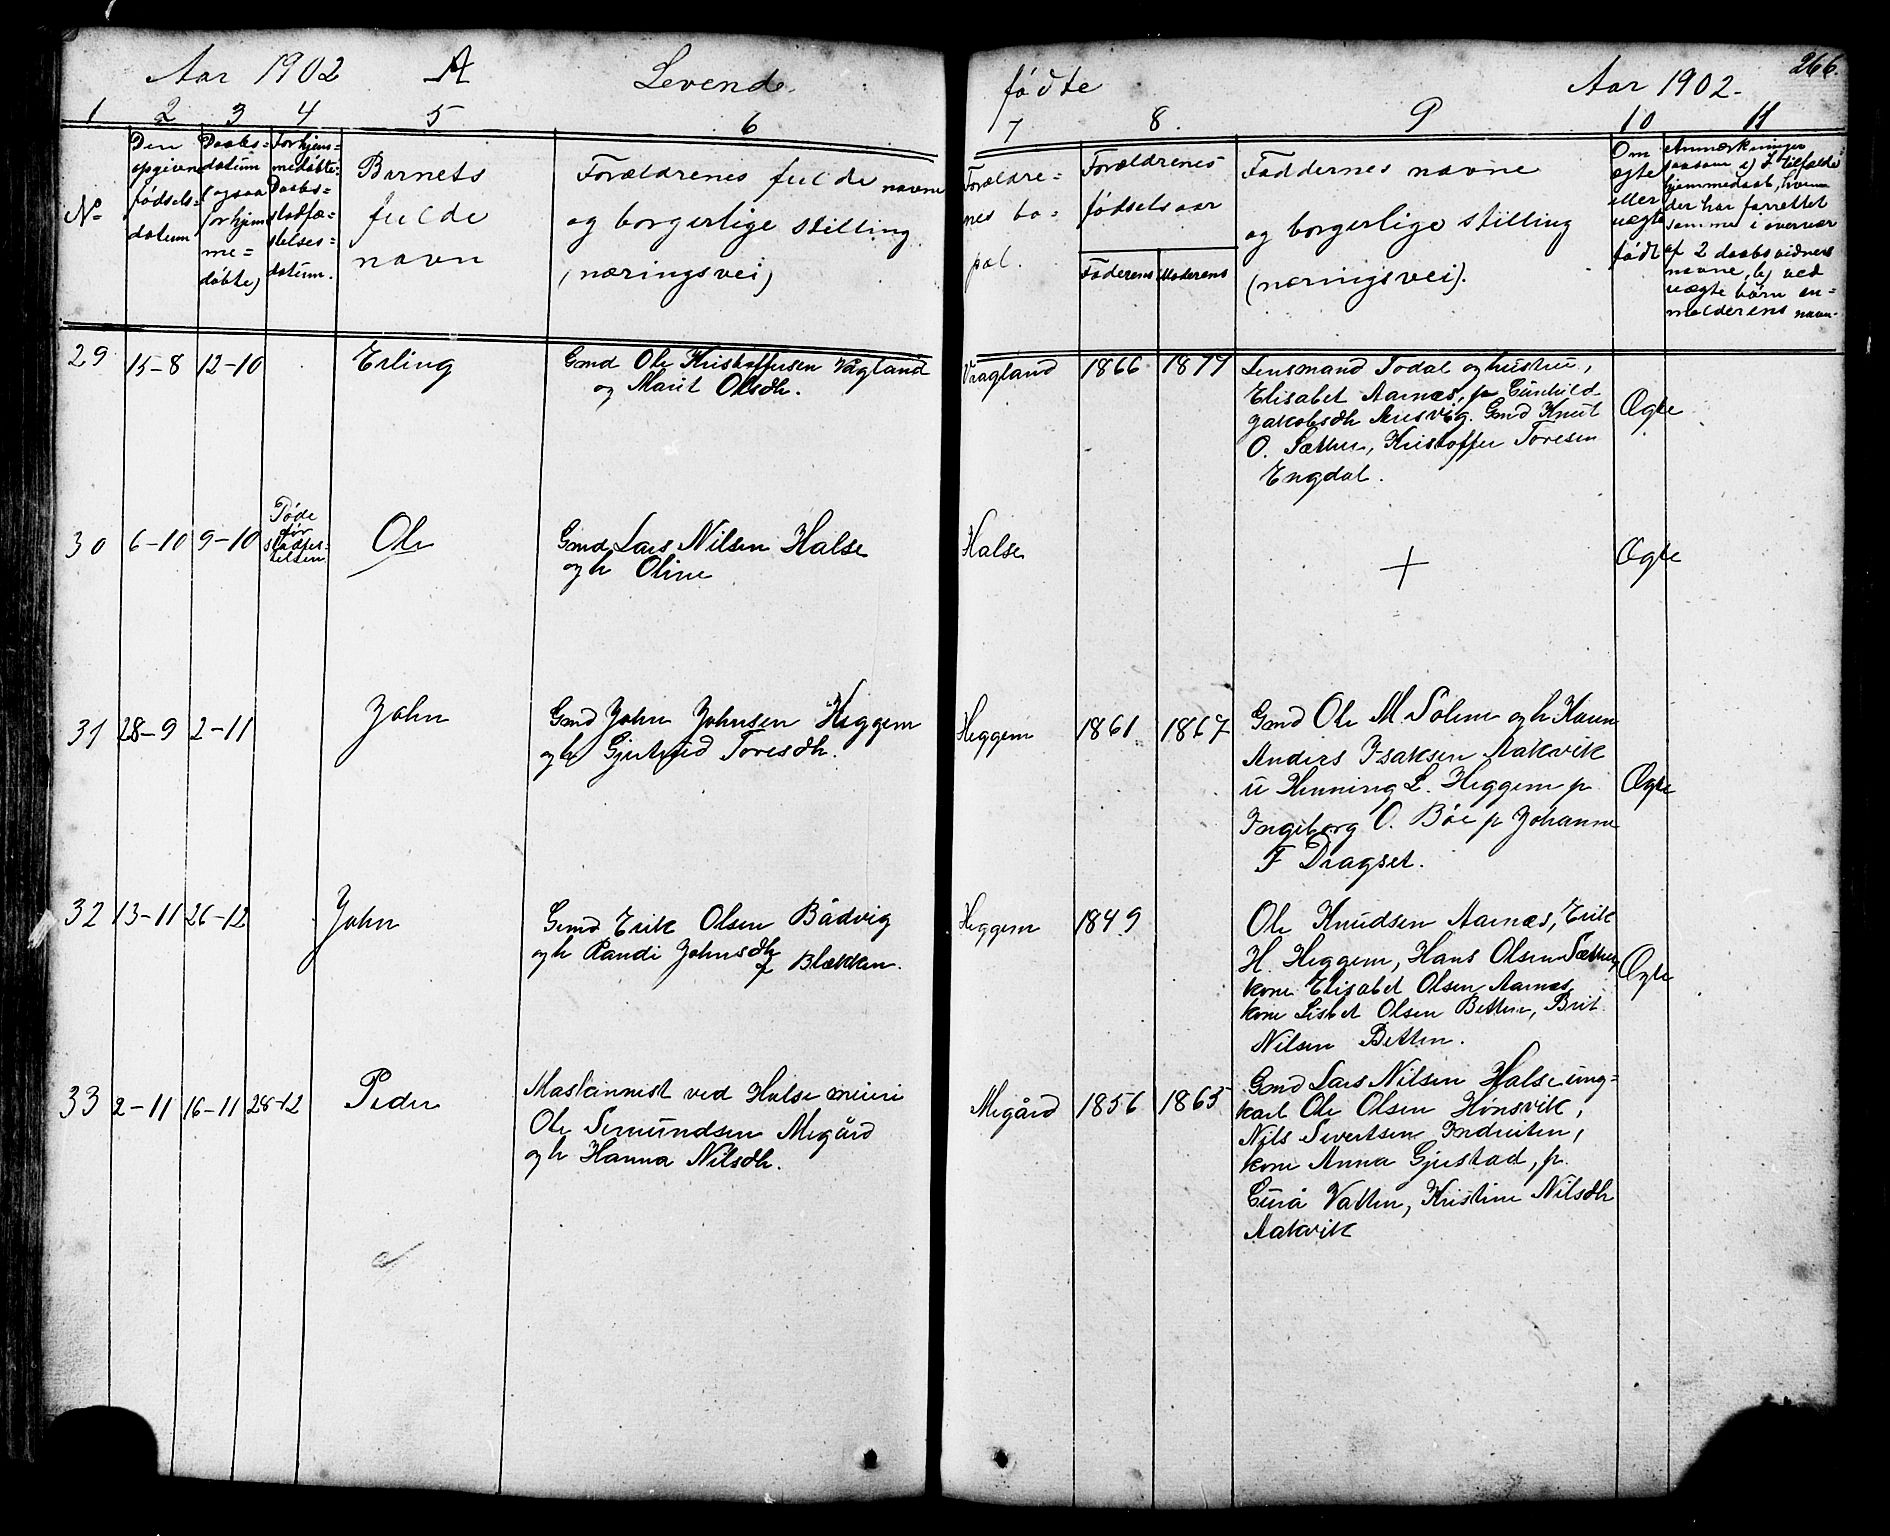 266.
Aar 1902 A Levende fødte Aar 1902.
1 2 3 4 5 6 7 8. 9 10 11
No
Den
opgivne
fødsels-
datum
Daabs-
datum
(ogsaa
for hjem
me-
døbte)
For hjem-
medøbte:
Daabs-
stadfæ-
stelses-
datum.
Barnets
fulde
navn
Forældrenes fulde navne
og borgerlige stilling
(næringsvei)
Forældre-
nes bo-
pæl.
Forældrenes
fødselsaar
Faderens Moderens
Faddernes navne
og borgerlige stilling
(næringsvei).
Om
ægte
eller
uægte
født
Anmærkninger
saasom a) I tilfælde
hjemmedaab, hvem
der har forrettet
samme i overvær
af 2 daabsvidners
navne, b) ved
uægte børn an-
melderens navn.
29 15-8 12-10 Erling
Gmd Ole Kristoffersen Vågland
og Marit Olsdtr.
Vaagland 1866 1877
Lensmand Todal og hustru,
Elisabet Aarnæs, p Gunhild
Jakobsdtr Aresvig. Gmd Knut
O. Sætter, Kristoffer Toresen
Engdal.
Ægte
30 6-10 9-10
Døde
før
stadfæs-
telsen
Ole
Gmd Lars Nilsen Halse
og h Oline
Halse
+
Ægte
31 28-9 2-11 John
Gmd John Johnsen Heggem
og h Gjertrud Toresdtr.
Heggem 1861 1867
Gmd Ole M. Solem og h Karen
Anders Isaksen Aakvik
u Henning L. Heggem p
Ingeborg O. Bøe p Johanne
F Dragset.
Ægte
32 13-11 26-12 John
Gmd Erik Olsen Bådvig
og h Randi Johnsdtr
f Blækken.
Heggem 1849
Ole Knudsen Aarnæs, Erik
H. Heggem, Hans Olsen Sætter
kone Elisabet Olsen Aarnæs
kone Lisbet Olsen Betten, Brit
Nilsen Betten.
Ægte
33 2-11 16-11 28-12 Peder
Maskinnist ved Halse meieri
Ole Semundsen Megård
og h Hanna Nilsdtr.
Megård 1856 1865
Gmd Lars Nilsen Halse ung-
karl Ole Olsen Hønsvik,
Nils Sivertsen Indreiten,
kone Anna Gjerstad, p.
Gurå Vatten, Kristine Nilsdtr
Aakvik